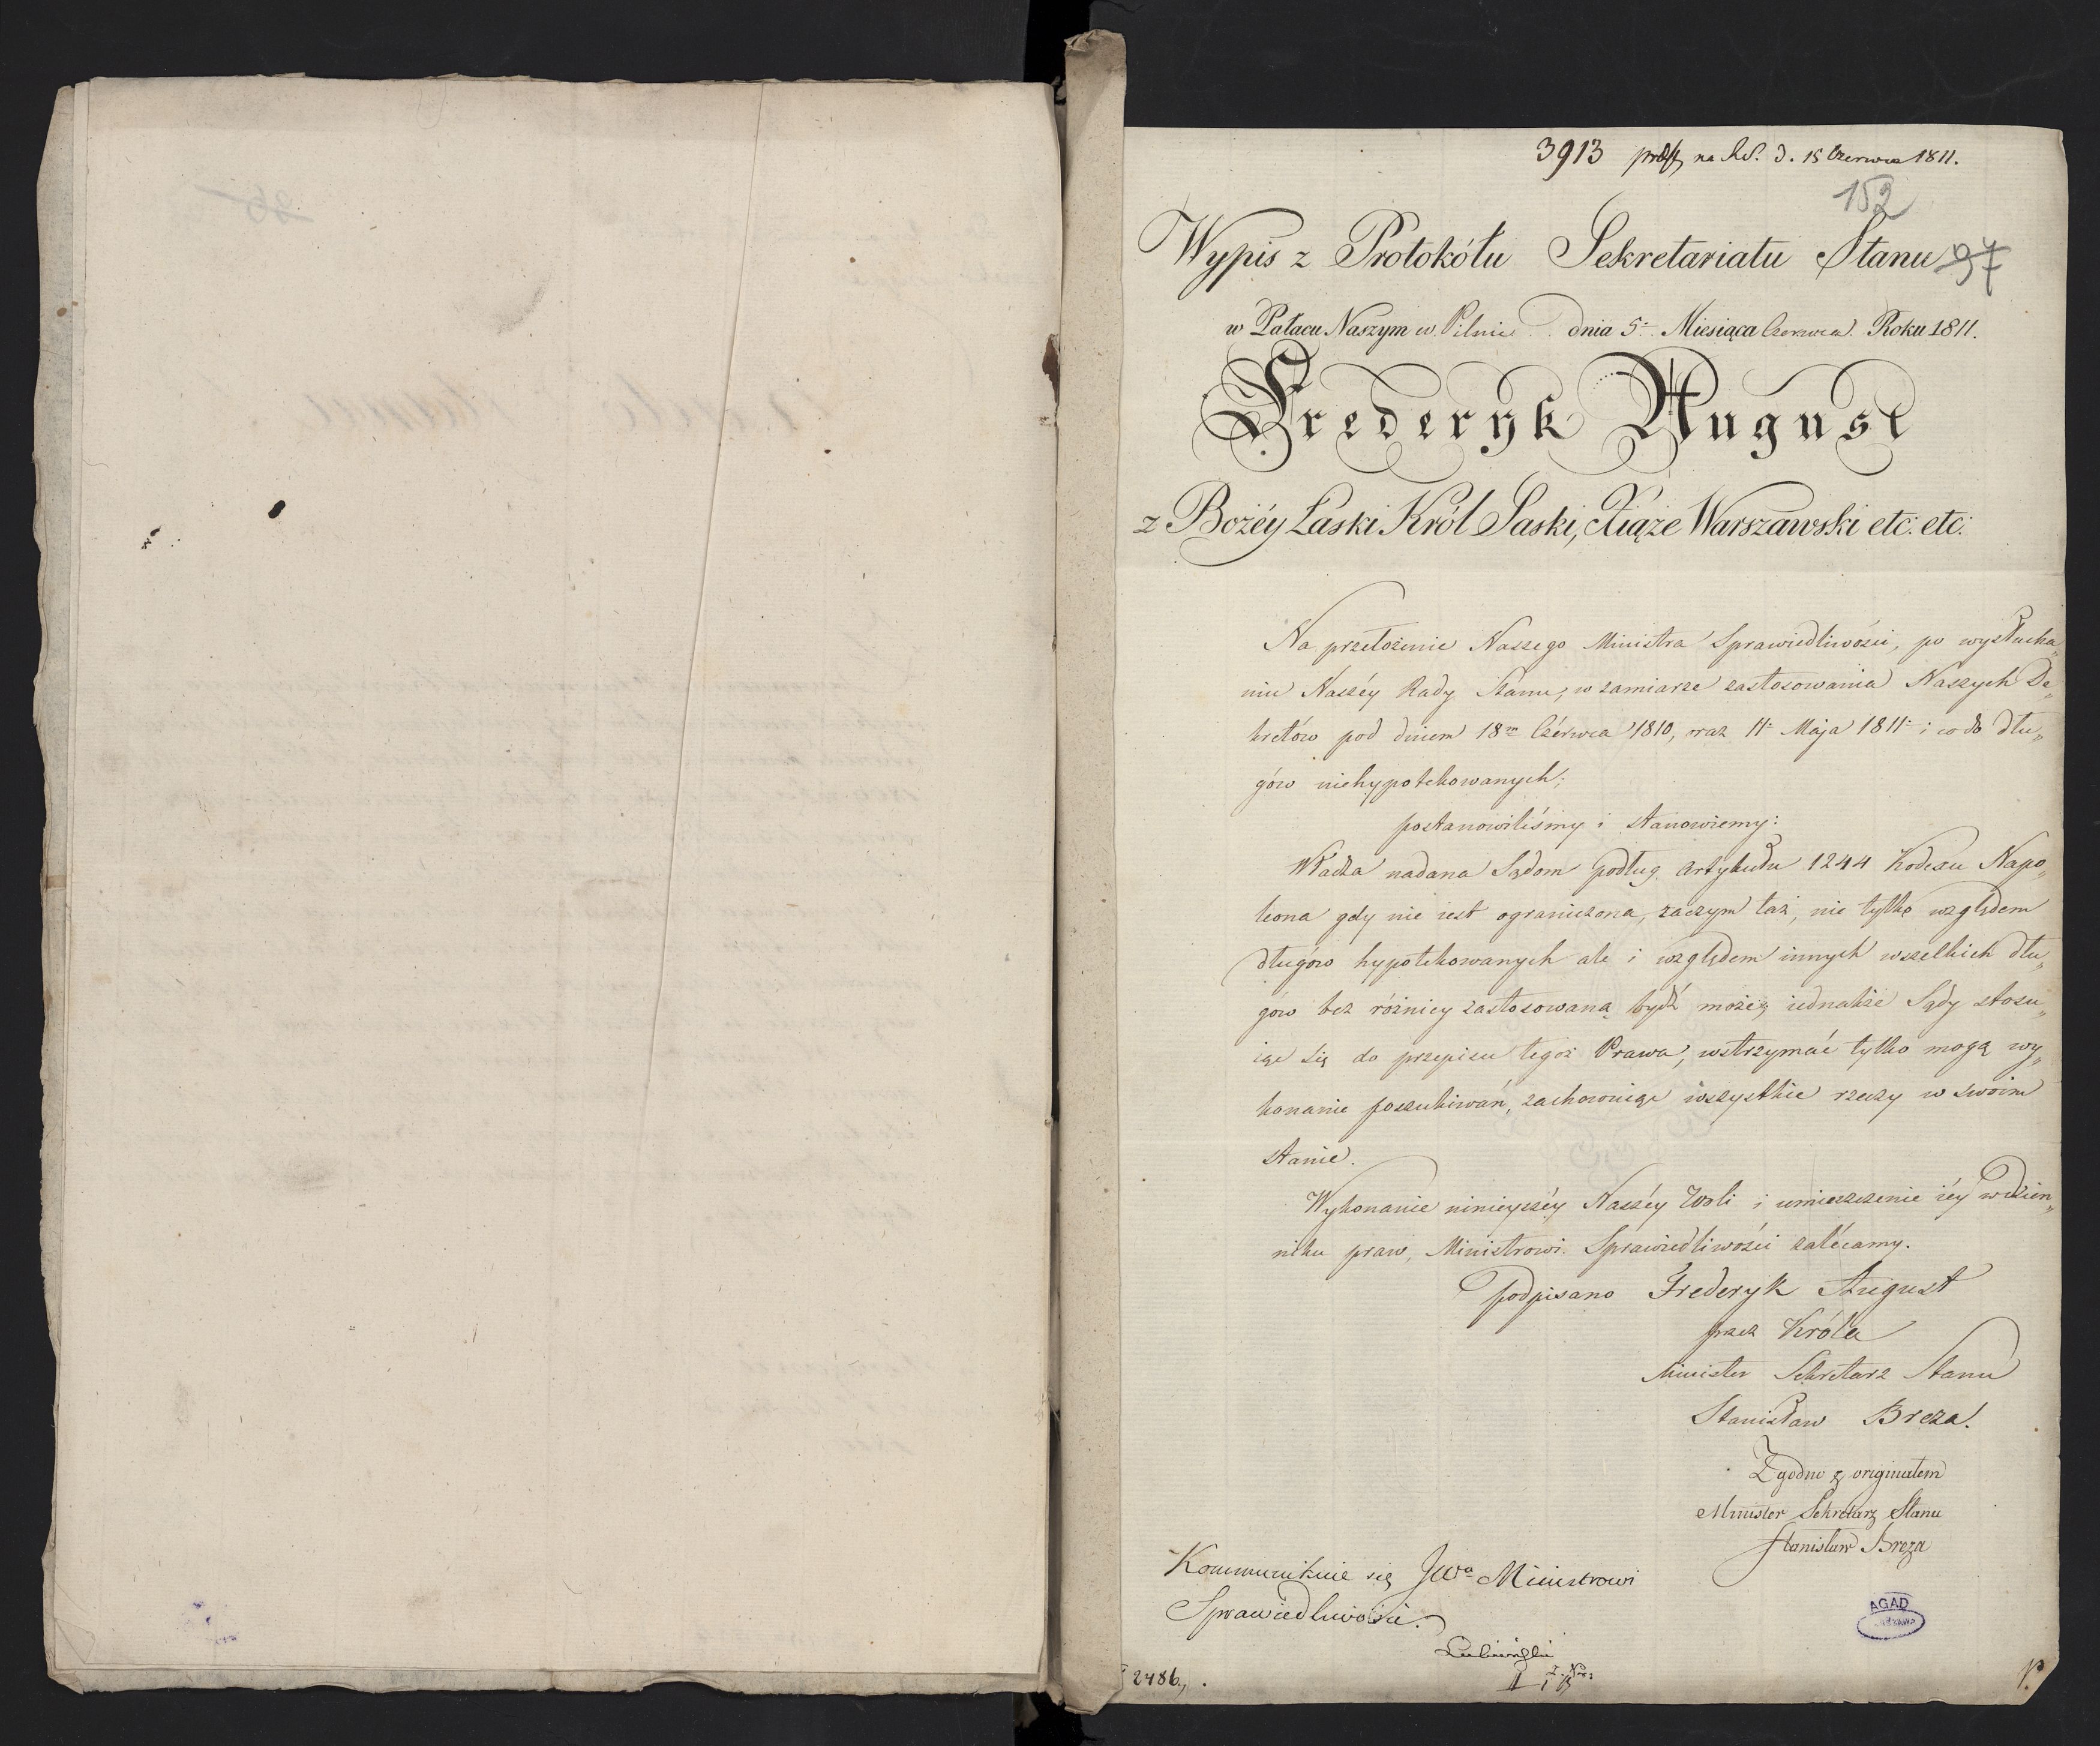 3913 na R.S. d. 15 Czerwca 1811.
152
Wypis z Protokółu Sekretariatu Stanu 97
w Pałacu Naszym w Pilnic dnia 5. Miesiąca Czerwca Roku 1811.
Frederyk August
z Bożéy Łaski Król Saski, Xiąże Warszawski etc: etc:
Na przełożenie Naszego Ministra Sprawiedliwości, po wysłucha„
niu Naszéy Rady Stanu, w zamiarze zastosowania Naszych De„
kretów pod dniem 18m Czérwca 1810, oraz 11. Maja 1811. i co do dłu„
gów niehypotekowanych;
postanowiliśmy i stanowiemy:
Władza nadana Sądom podług Artykułu 1244 Kodexu Napo„
leona gdy nie iest ograniczona, zaczym taż, nie tylko względem
długów hypotekowanych ale i względem innych wszelkich dłu„
gów bez różnicy zastosowaną bydź może; iednakże Sądy stosu„
iąc się do przepisu tegoż Prawa, wstrzymać tylko mogą wy„
konanie poszukiwań, zachowuiąc wszystkie rzeczy w swoim
stanie.
Wykonanie ninieyszéy Naszéy Woli i umieszczenie iéy w Dzien„
niku praw, Ministrowi Sprawiedliwości zalécamy.
podpisano Frederyk August
przez Króla
Minister Sekretarz Stanu
Stanisław Breza.
Zgodno z originałem
Minister Sekretarz Stanu
Stanisław Breza
Kommunikuie się JWo Ministrowi
Sprawiedliwości.
AGAD
2486.